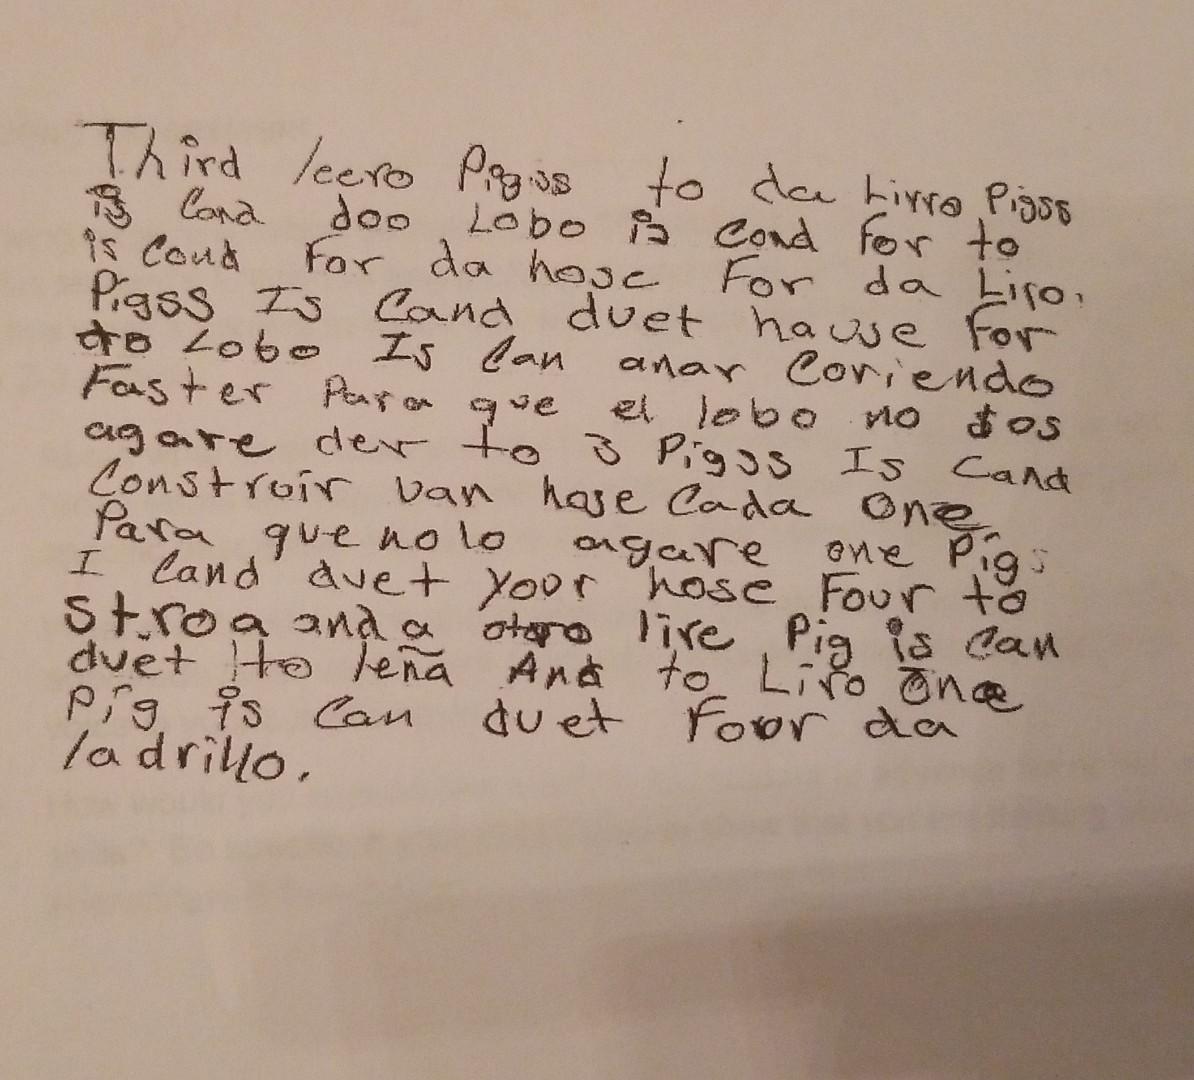 Third leero Pigss to da Lirro Pigss
is Cand doo Lobo is Cond for to
is Coud For da hose For da Liro.
Pigss Is Cand duet hause For
to Lobo Is Can anar Coriendo
Faster Para que el lobo no $os
agare der to 3 Pigss Is Cand
Construir van hose Cada One
Para que no lo agare one Pig
I Cand duet your hose Four to
stroa and a otoro lire Pig is Can
duet to leña And to Liro One
Pig is Can duet Foor da
ladrillo.